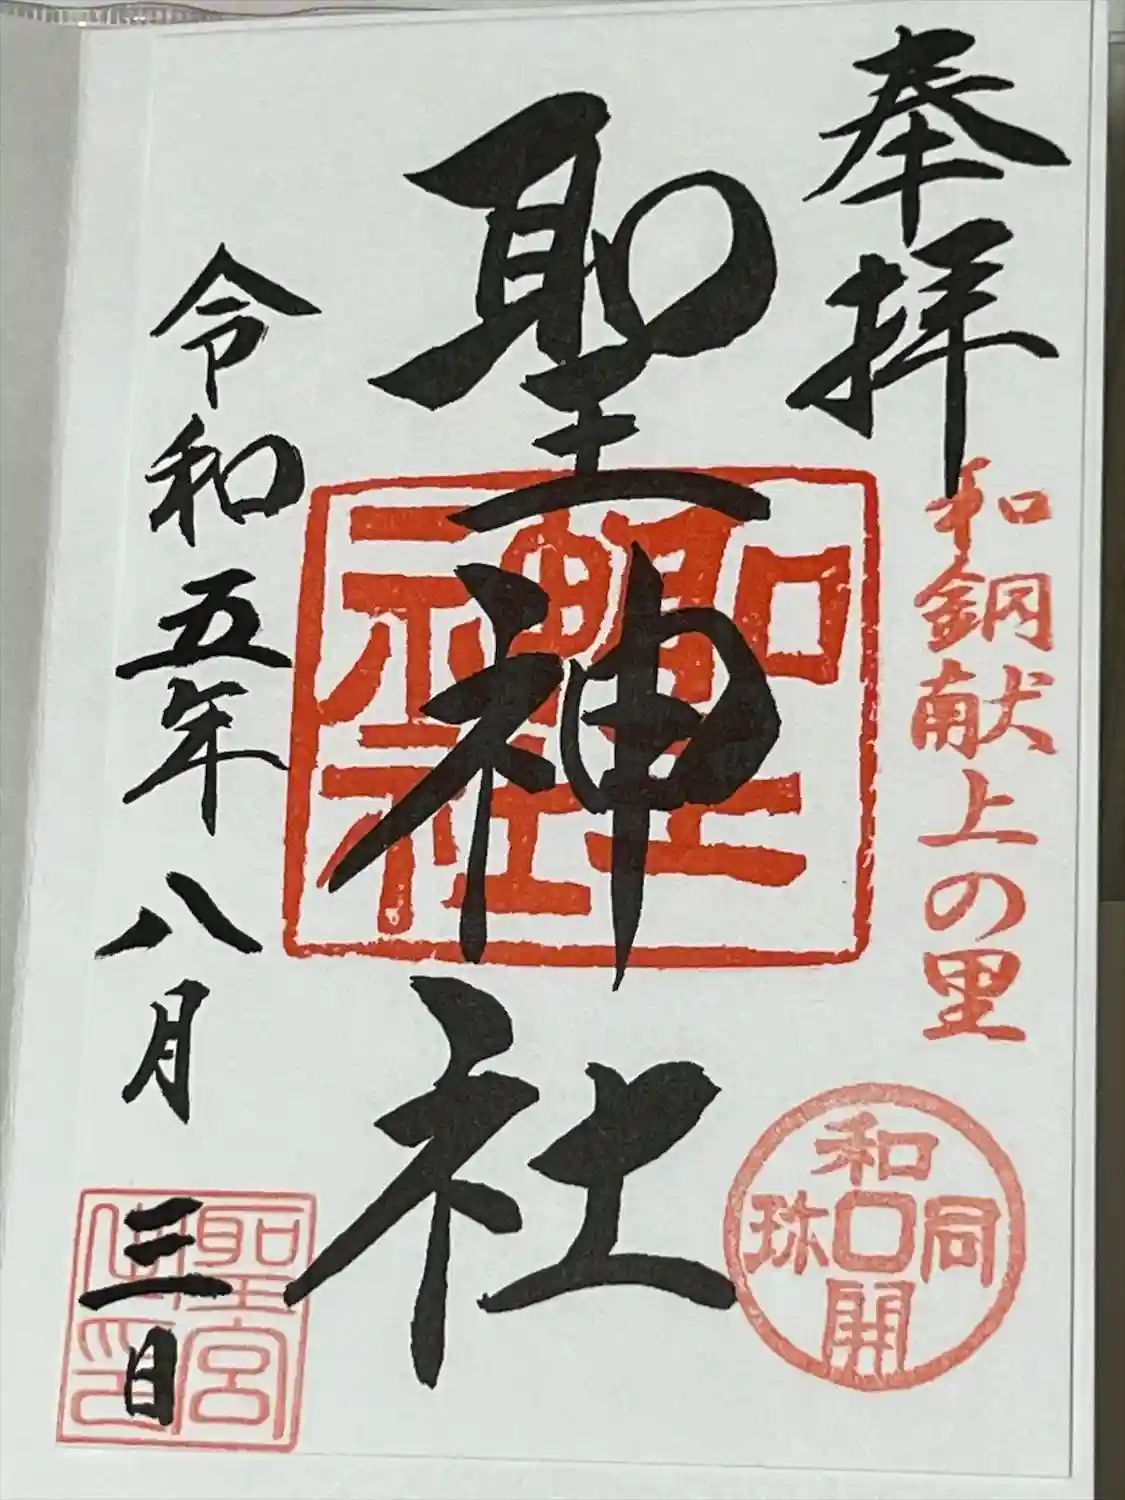 奉拝
和銅献上の里
和同開珎
聖神社
聖神社
令和五年八月三日
聖宮